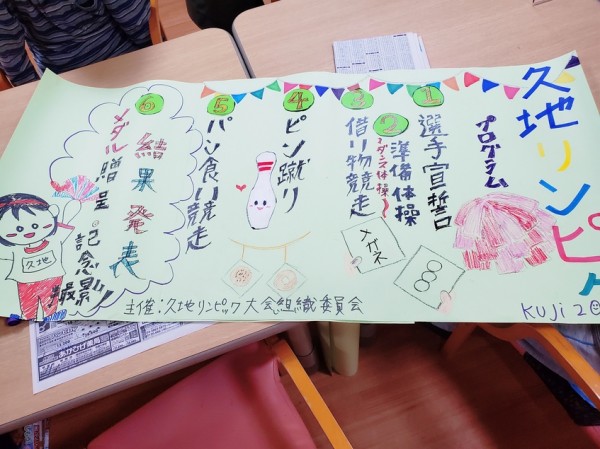 久地リンピ
プログラム
① 選手宣誓
② 準備体操
～ダンス体操～
③ 借り物競走
④ ピン蹴り
⑤ パン食い競走
⑥ 結果発表
メダル贈呈・記念撮影!
メガネ
久地
主催:久地リンピック大会組織委員会
KUJI 20